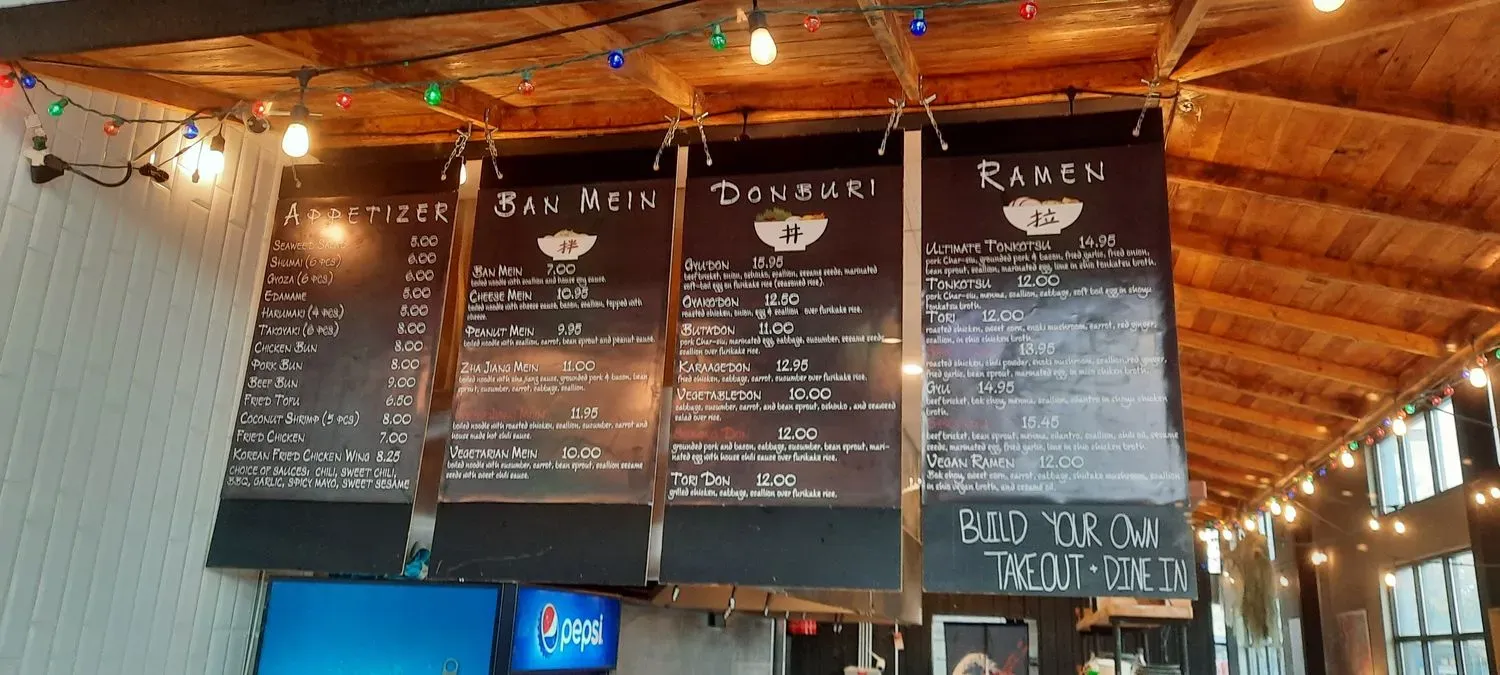 APPETIZER
SEAWEED SALAD 5.00
SHUMAI (6 PCS) 6.00
GYOZA (6 PCS) 6.00
EDAMAME 5.00
HARUMAKI (4 PCS) 5.00
TAKOYAKI (6 PCS) 8.00
CHICKEN BUN 8.00
PORK BUN 8.00
BEEF BUN 9.00
FRIED TOFU 6.50
COCONUT SHRIMP (5 PCS) 8.00
FRIED CHICKEN 7.00
KOREAN FRIED CHICKEN WING 8.25
CHOICE OF SAUCES: CHILI, SWEET CHILI,
BBQ, GARLIC, SPICY MAYO, SWEET SESAME
BAN MEIN
拌
BAN MEIN 7.00
boiled noodle with scallion and house soy sauce.
CHEESE MEIN 10.95
boiled noodle with cheese sauce, bacon, scallion, topped with
cheese.
PEANUT MEIN 9.95
boiled noodle with scallion, carrot, bean sprout and peanut sauce.
ZHA JIANG MEIN 11.00
boiled noodle with zha jiang sauce, grounded pork & bacon, bean
sprout, cucumber, carrot, cabbage, scallion.
MEIN 11.95
boiled noodle with roasted chicken, scallion, cucumber, carrot and
house made hot chili sauce.
VEGETARIAN MEIN 10.00
boiled noodle with cucumber, carrot, bean sprout, scallion sesame
seeds with sweet chili sauce.
DONBURI
丼
GYUDON 15.95
beef brisket, onion, oshinko, scallion, sesame seeds, marinated
soft-boil egg on furikake rice (seasoned rice).
OYAKODON 12.50
roasted chicken, onion, egg & scallion over furikake rice.
BUTADON 11.00
pork Char-siu, marinated egg, cabbage, cucumber, sesame seeds
scallion over furikake rice.
KARAAGEDON 12.95
fried chicken, cabbage, carrot, cucumber over furikake rice.
VEGETABLEDON 10.00
cabbage, cucumber, carrot, and bean sprout, oshinko, and seaweed
salad over rice.
12.00
grounded pork and bacon, cabbage, cucumber, bean sprout, mari-
nated egg with house chili sauce over furikake rice.
TORI DON 12.00
grilled chicken, cabbage, scallion over furikake rice.
RAMEN
拉
ULTIMATE TONKOTSU 14.95
pork Char-siu, grounded pork & bacon, fried garlic, fried onion,
bean sprout, scallion, marinated egg, lime in shio tonkatsu broth.
TONKOTSU 12.00
pork Char-siu, menma, scallion, cabbage, soft boil egg in shoyu
tonkatsu broth.
TORI 12.00
roasted chicken, sweet corn, enoki mushroom, carrot, red ginger,
scallion, in shio chicken broth.
13.95
roasted chicken, chili powder, enoki mushroom, scallion, red ginger,
fried garlic, bean sprout, marinated egg, in miso chicken broth.
GYU 14.95
beef brisket, bok choy, menma, scallion, cilantro in shoyu chicken
broth.
15.45
beef brisket, bean sprout, menma, cilantro, scallion, chili oil, sesame
seeds, marinated egg, fried garlic, lime in shio chicken broth.
VEGAN RAMEN 12.00
Bok choy, sweet corn, carrot, cabbage, shiitake mushroom, scallion
in shio vegan broth, and sesame oil.
BUILD YOUR OWN
TAKEOUT + DINE IN
pepsi